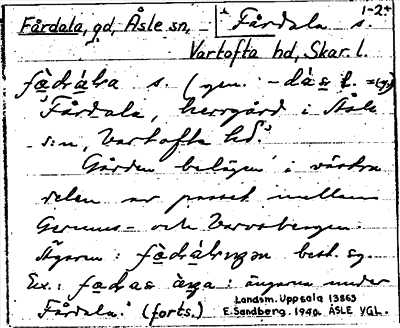 1-2
Fårdala, gd, Åsle sn,
Fårdala s.
Vartofta hd, Skar. l.
s. (gen.
'Fårdala, herrgård i Åsle
s:n, Vartofta hd.'
Gården belägen i västra
delen av passet mellan
Gerums- och Varvsbergen.
Ägaren: best. sg.
Ex.: ängarna under
Fårdala. (forts.)
Landsm. Uppsala 13863
E. Sandberg. 1940. ÅSLE VGL.